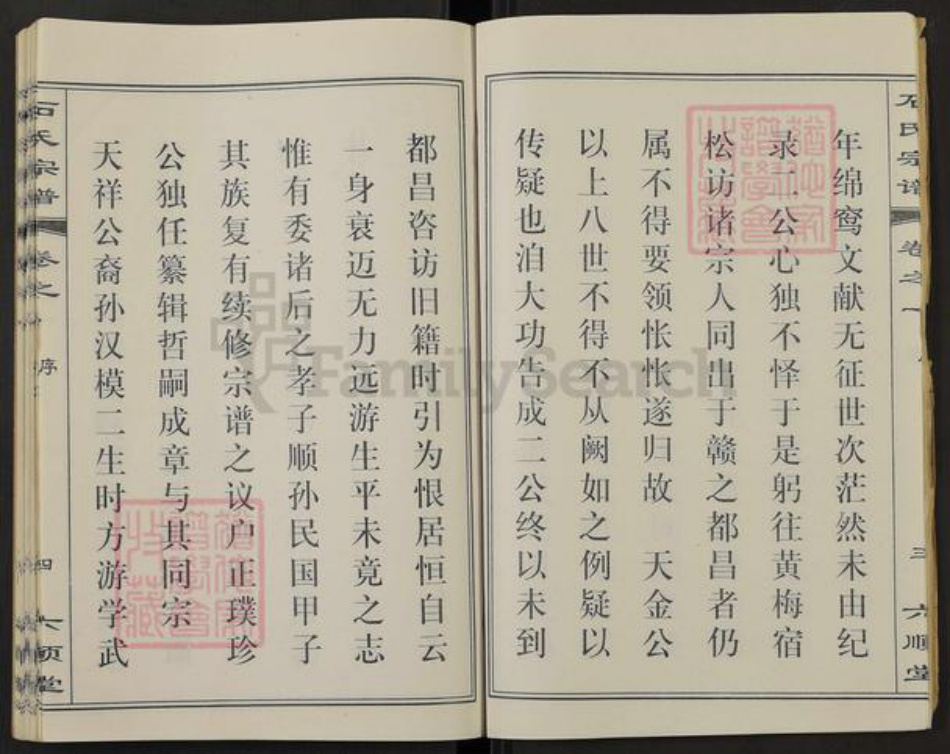 石氏宗谱 卷之一 三 六顺堂
年绵鸾文献无征世次茫然未由纪
录二公心独不怿于是躬往黄梅宿
松访诸宗人同出于赣之都昌者仍
属不得要领怅怅遂归故 天金公
以上八世不得不从阙如之例疑以
传疑也洎大功告成二公终以未到
都昌咨访旧籍时引为恨居恒自云
一身衰迈无力远游生平未竟之志
惟有委诸后之孝子顺孙民国甲子
其族复有续修宗谱之议户正璞珍
公独任纂辑哲嗣成章与其同宗
天祥公裔孙汉模二生时方游学武
石氏宗谱 卷之 序 四 六顺堂
FamilySearch